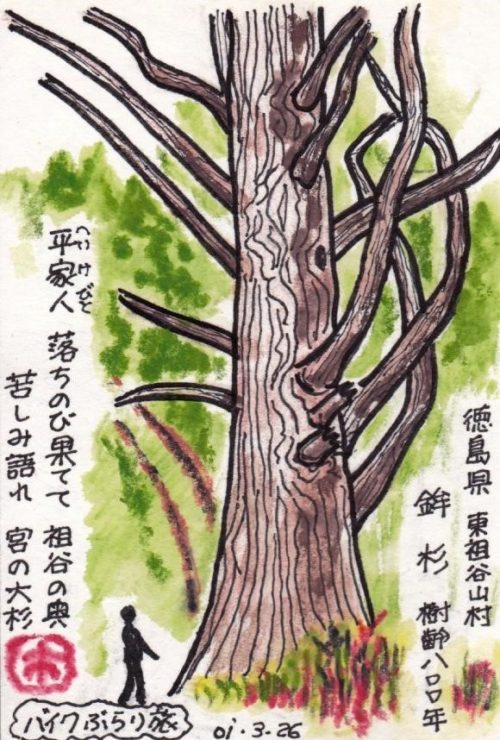 徳島県 東祖谷山村
鉾杉 樹齢八〇〇年
へいけびと
平家人 落ちのび果てて 祖谷の奥
苦しみ語れ 宮の大杉
バイクぶらり旅
01・3・26